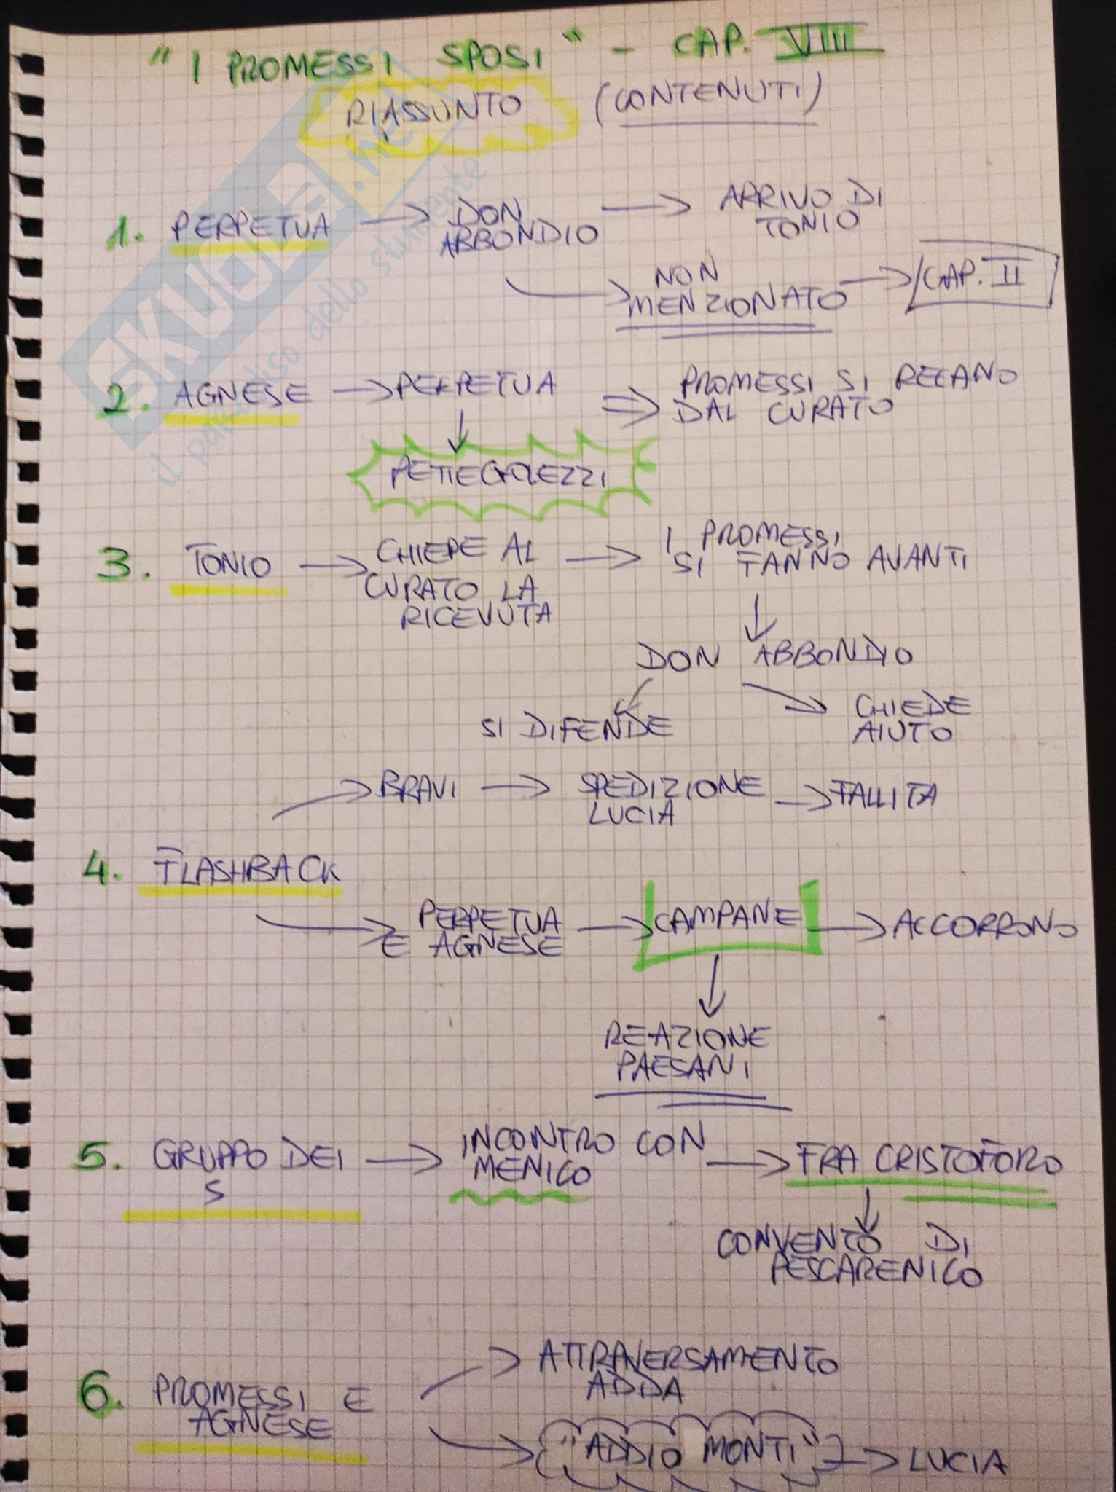 "I PROMESSI SPOSI" - CAP. VIII
RIASSUNTO (CONTENUTI)
1. PERPETUA → DON ABBONDIO → ARRIVO DI TONIO
→ NON MENZIONATO → CAP. II
2. AGNESE → PERPETUA ⇒ PROMESSI SI RECANO
DAL CURATO
↓
PETTEGOLEZZI
3. TONIO → CHIEDE AL
CURATO LA
RICEVUTA
→ I PROMESSI
SI FANNO AVANTI
↓
DON ABBONDIO
SI DIFENDE
CHIEDE
AIUTO
4. FLASHBACK
→ BRAVI → SPEDIZIONE
LUCIA → FALLITA
→ PERPETUA
E AGNESE → CAMPANE → ACCORRONO
↓
REAZIONE
PAESANI
5. GRUPPO DEI
5
→ INCONTRO CON
MENICO → FRA CRISTOFORO
↓
CONVENTO DI
PESCARENICO
6. PROMESSI E
AGNESE
→ ATTRAVERSAMENTO
ADDA
→ "ADDIO MONTI" → LUCIA
SKUOLA.net
il paradiso dello studente